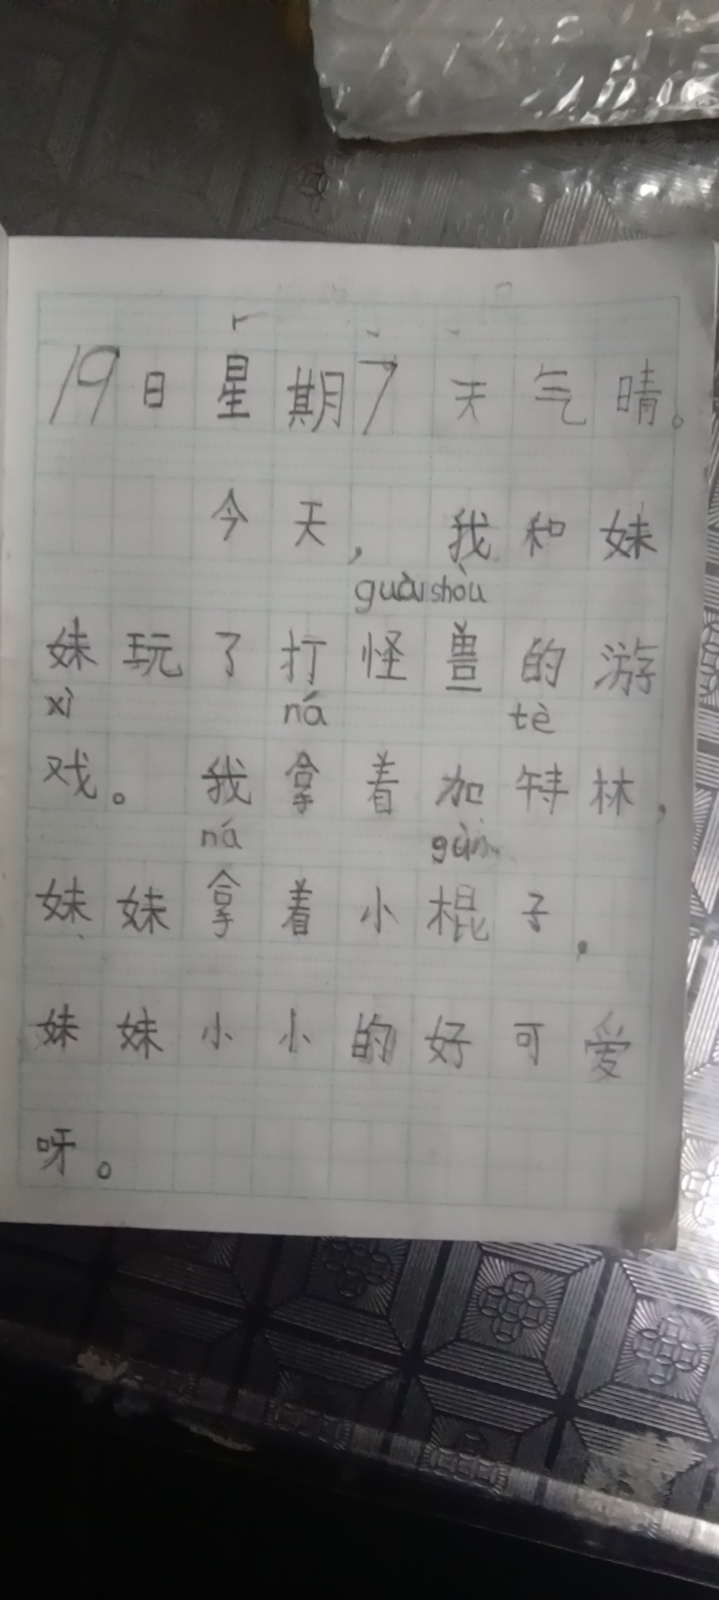 19日星期7天气晴。
今天，我和妹
guài shòu
妹玩了打怪兽的游
xì ná tè
戏。我拿着加特林，
ná gùn
妹妹拿着小棍子．
妹妹小小的好可爱
呀。